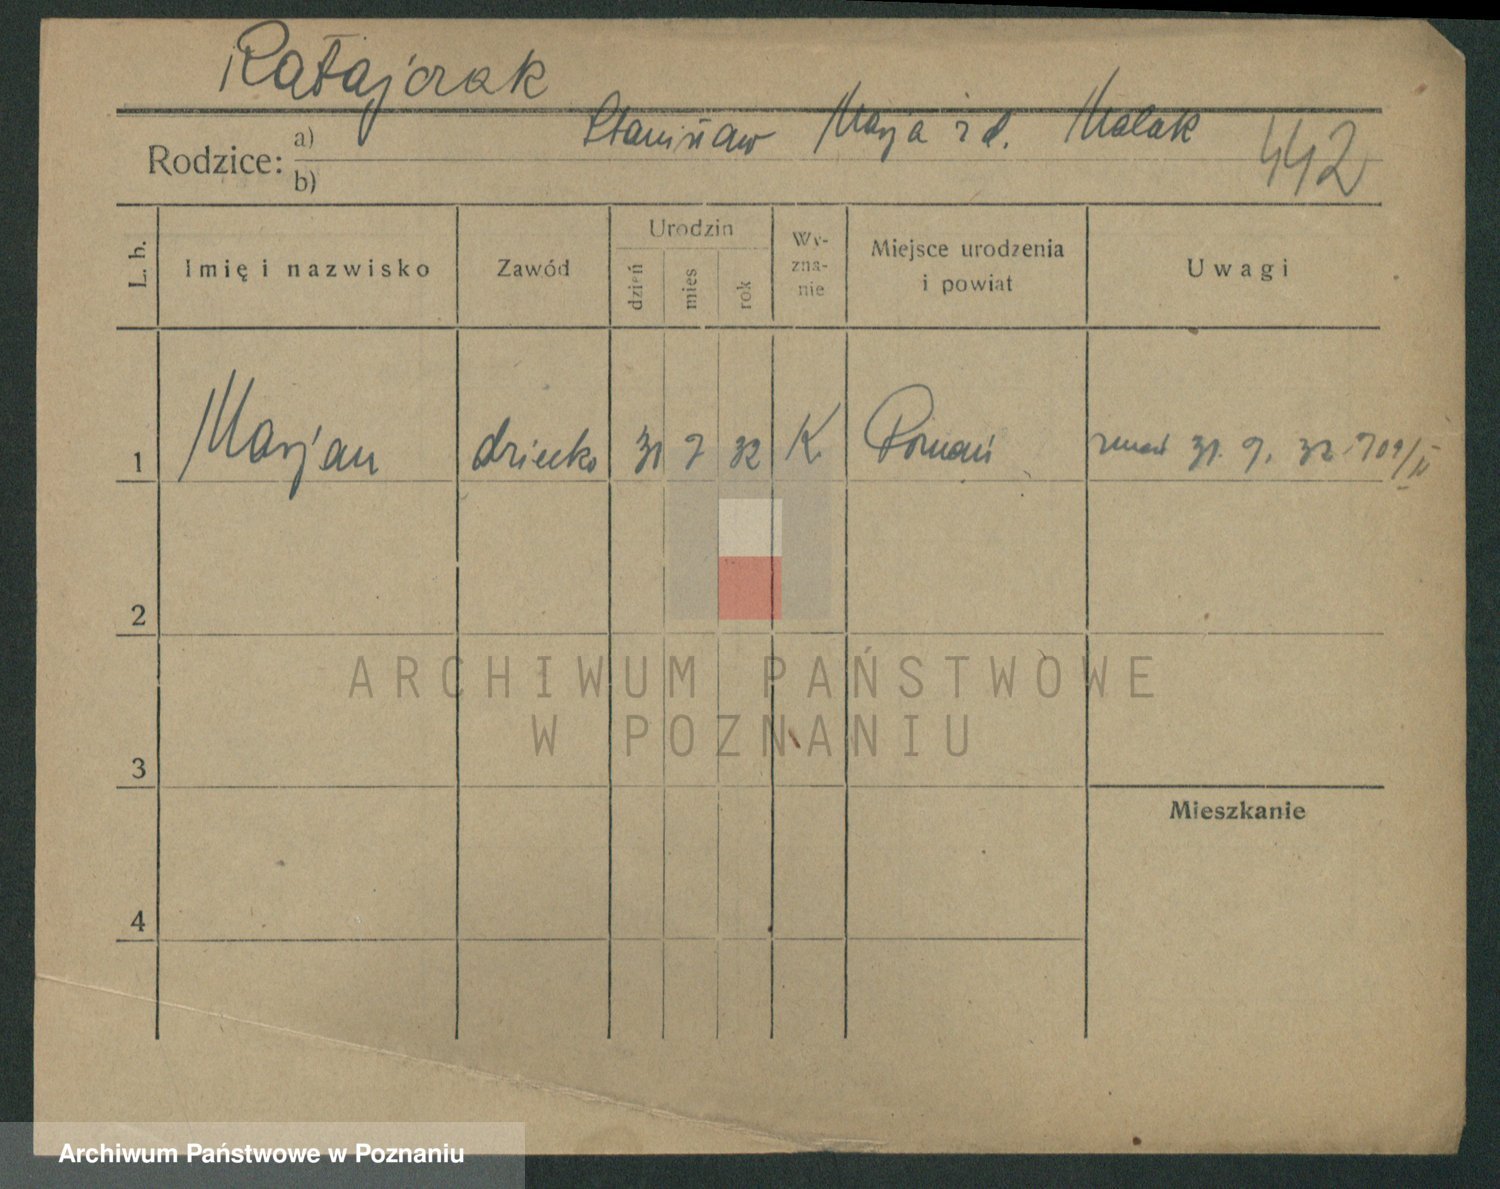 Ratajczak
Rodzice: a) Stanisław Marja z d. Malak
b)
442
L. b.
Imię i nazwisko
Zawód
Urodzin
dzień
mies
rok
Wy-
zna-
nie
Miejsce urodzenia
i powiat
Uwagi
1 Marjan dziecko 31 7 32 K. Poznań zmarł 31. 7. 32 709/II
2
3
4
Mieszkanie
ARCHIWUM PAŃSTWOWE
W POZNANIU
Archiwum Państwowe w Poznaniu